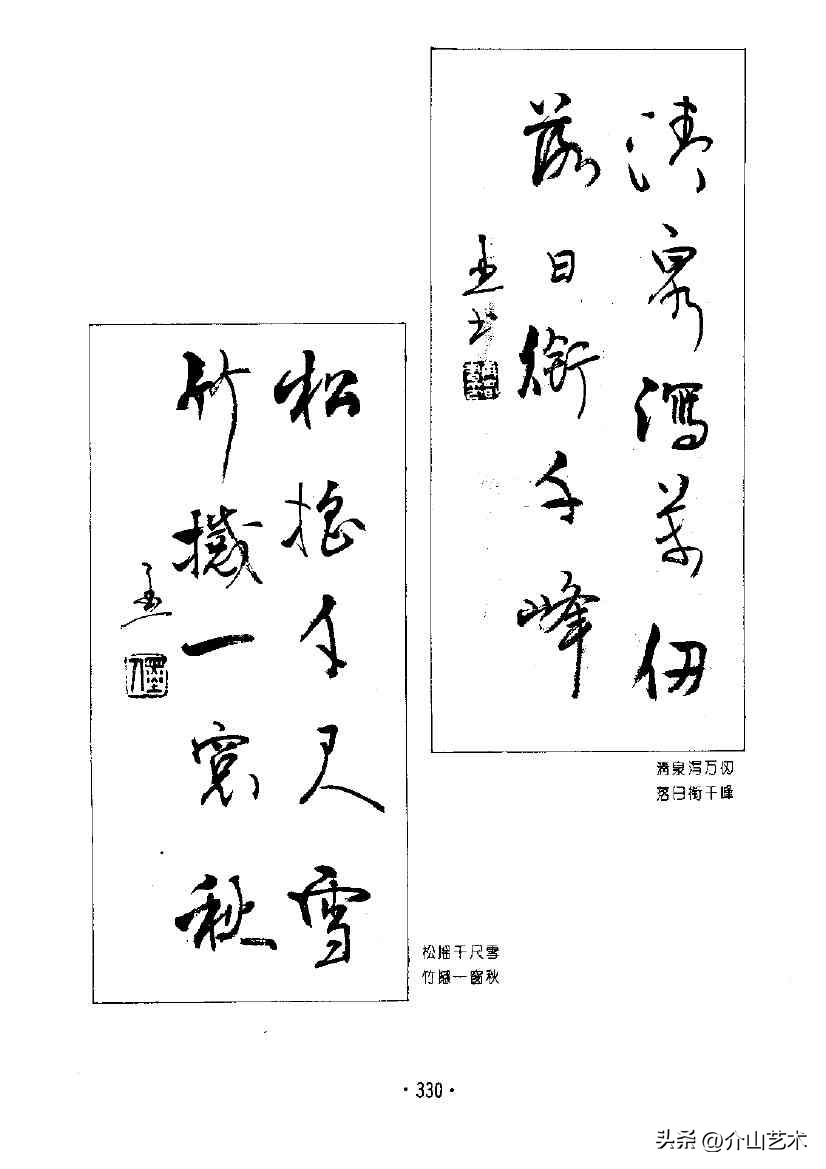 清泉瀉萬仞
落日銜千峰
清泉泻万仞
落日衔千峰
松摇千尺雪
竹撼一窗秋
松摇千尺雪
竹撼一窗秋
·330·
头条 @介山艺术